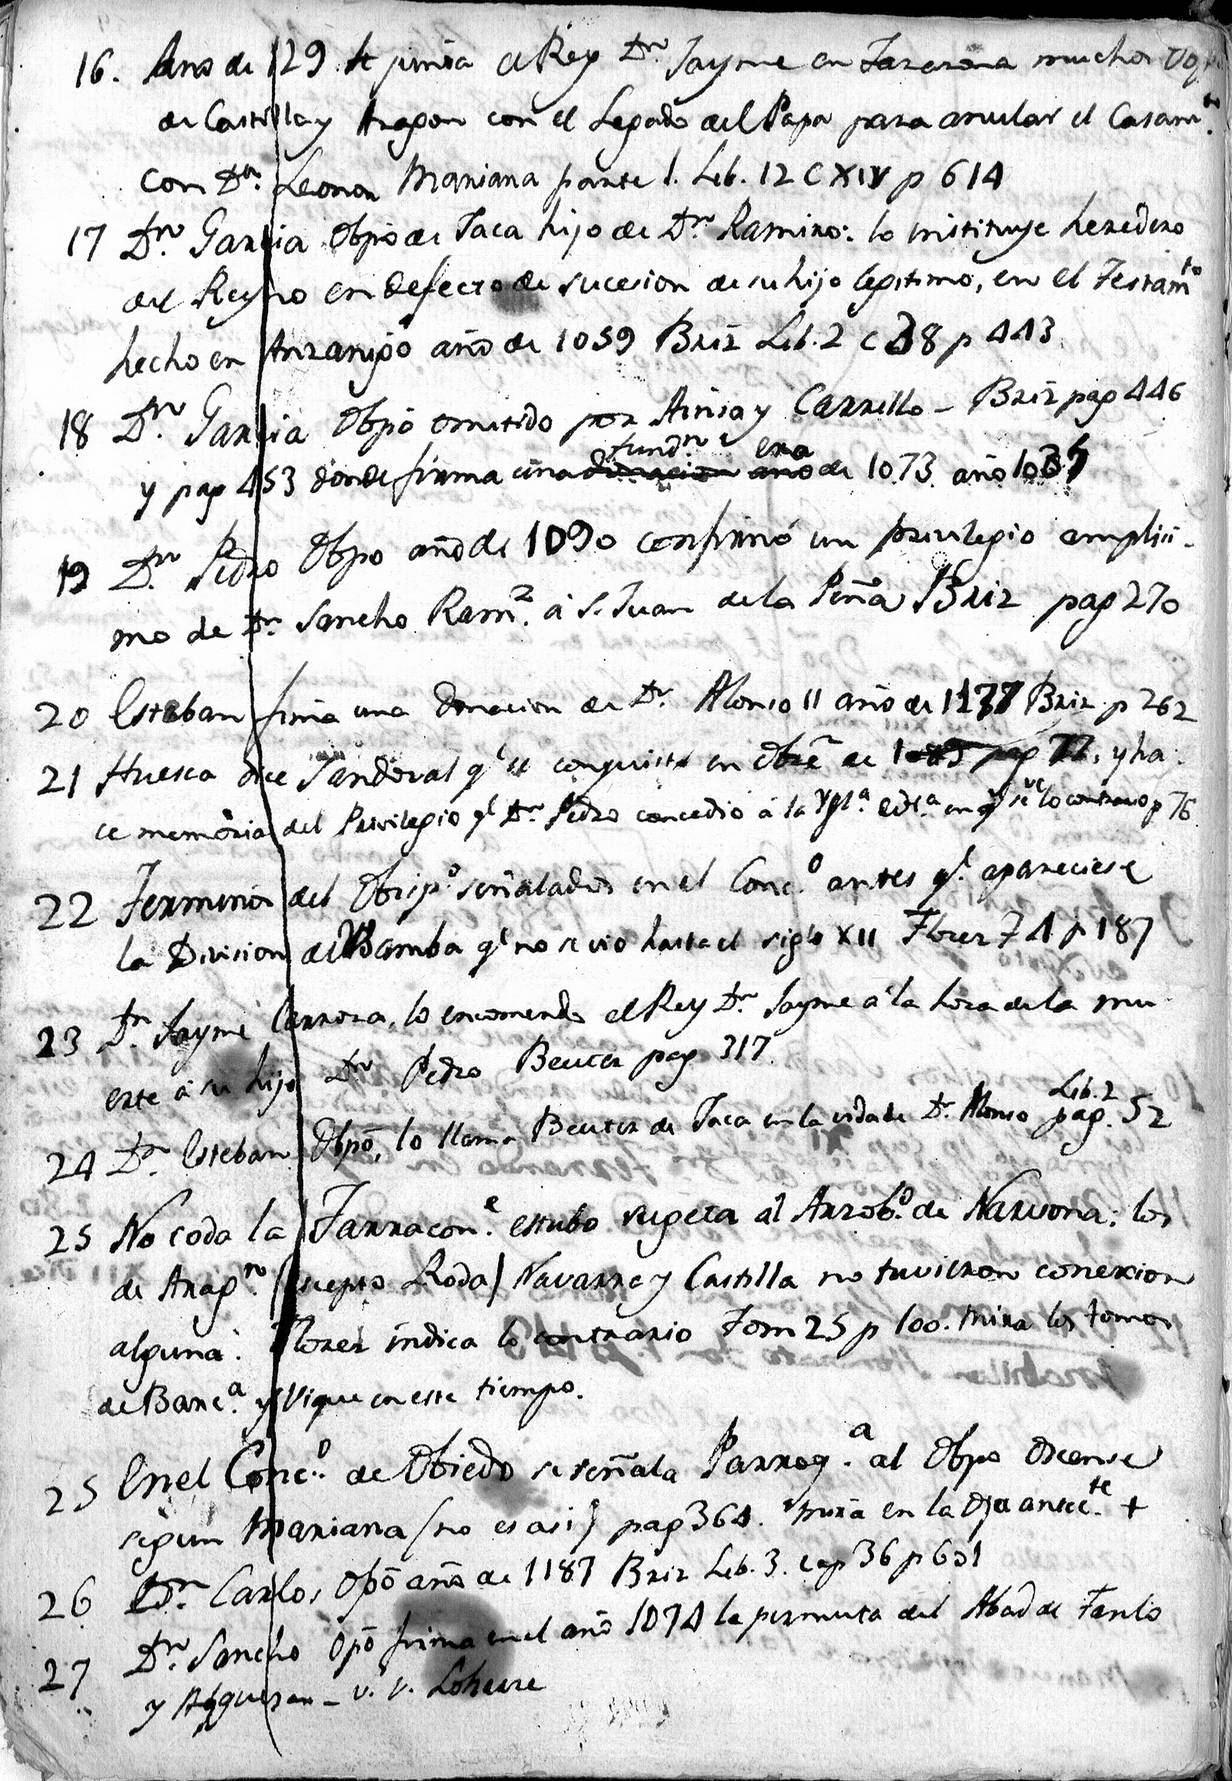 16. Ano de 129 se junta el Rey Dn. Jayme en Tarazona muchos
de Castilla y Aragon con el Legado del Papa para anular el Casamto.
con Da. Leonor Mariana parte 1. Lib. 12 C XIV p 614
17 Dn. Garcia Obpo de Jaca hijo de Dn. Ramiro: lo instituye heredero
del Reyno en defecto de sucesion de su hijo legitimo, en el Testamto
hecho en Anzanigo año de 1059 Briz Lib. 2 c 38 p 443
18 Dn. Garcia Obpo omitido por Ainsa y Carrillo - Briz pag 446
y pag 453 donde firma una fundn. era de 1073. año 1035
19 Dn. Pedro Obpo año de 1090 confirmó un privilegio amplisi-
mo de Dn. Sancho Ramz. á S. Juan de la Peña Briz pag 270
20 Esteban firma una donacion de Dn. Alonso II año de 1177 Briz p 262
21 Huesca dice Sandoval q.e se conquisto en Obre. de pag 77. y ha-
ce memoria del Privilegio q.e Dn. Pedro concedio á la Ygla. en q.e se ve lo contrario p 76
22 Terminos del Obispo. señalados en el Conco. antes q.e apareciese
la Division de Wamba q.e no se vio hasta el siglo XII Florez T 4 p 187
23 Dn. Jayme Carroza, lo encomendo el Rey Dn. Jayme á la hora de la mu-
erte á su hijo Dn. Pedro Beuter pag 317
24 Dn. Esteban Obpo, lo llama Beuter de Jaca en la vida de Dn. Alonso Lib. 2 pag. 52
25 No toda la Tarracone. estubo sugeta al Arzobo. de Narvona: los
de Aragn. (escepto Roda) Navarra y Castilla no tuvieron conexion
alguna. Florez indica lo contrario Tom 25 p 100. mira los tomos
de Barca. y Vique en este tiempo.
25 En el Conco. de Obiedo se señala Parroqa. al Obpo Oscense
segun Mariana (no es asi) pag 364. mira en la Oja antecte. +
26 Dn. Carlos, Opo año de 1187 Briz Lib. 3. cap 36 p 631
27 Dn. Sancho Opo firma en el año 1074 la permuta del Abad de Fanlo
y - v. v. Loharre